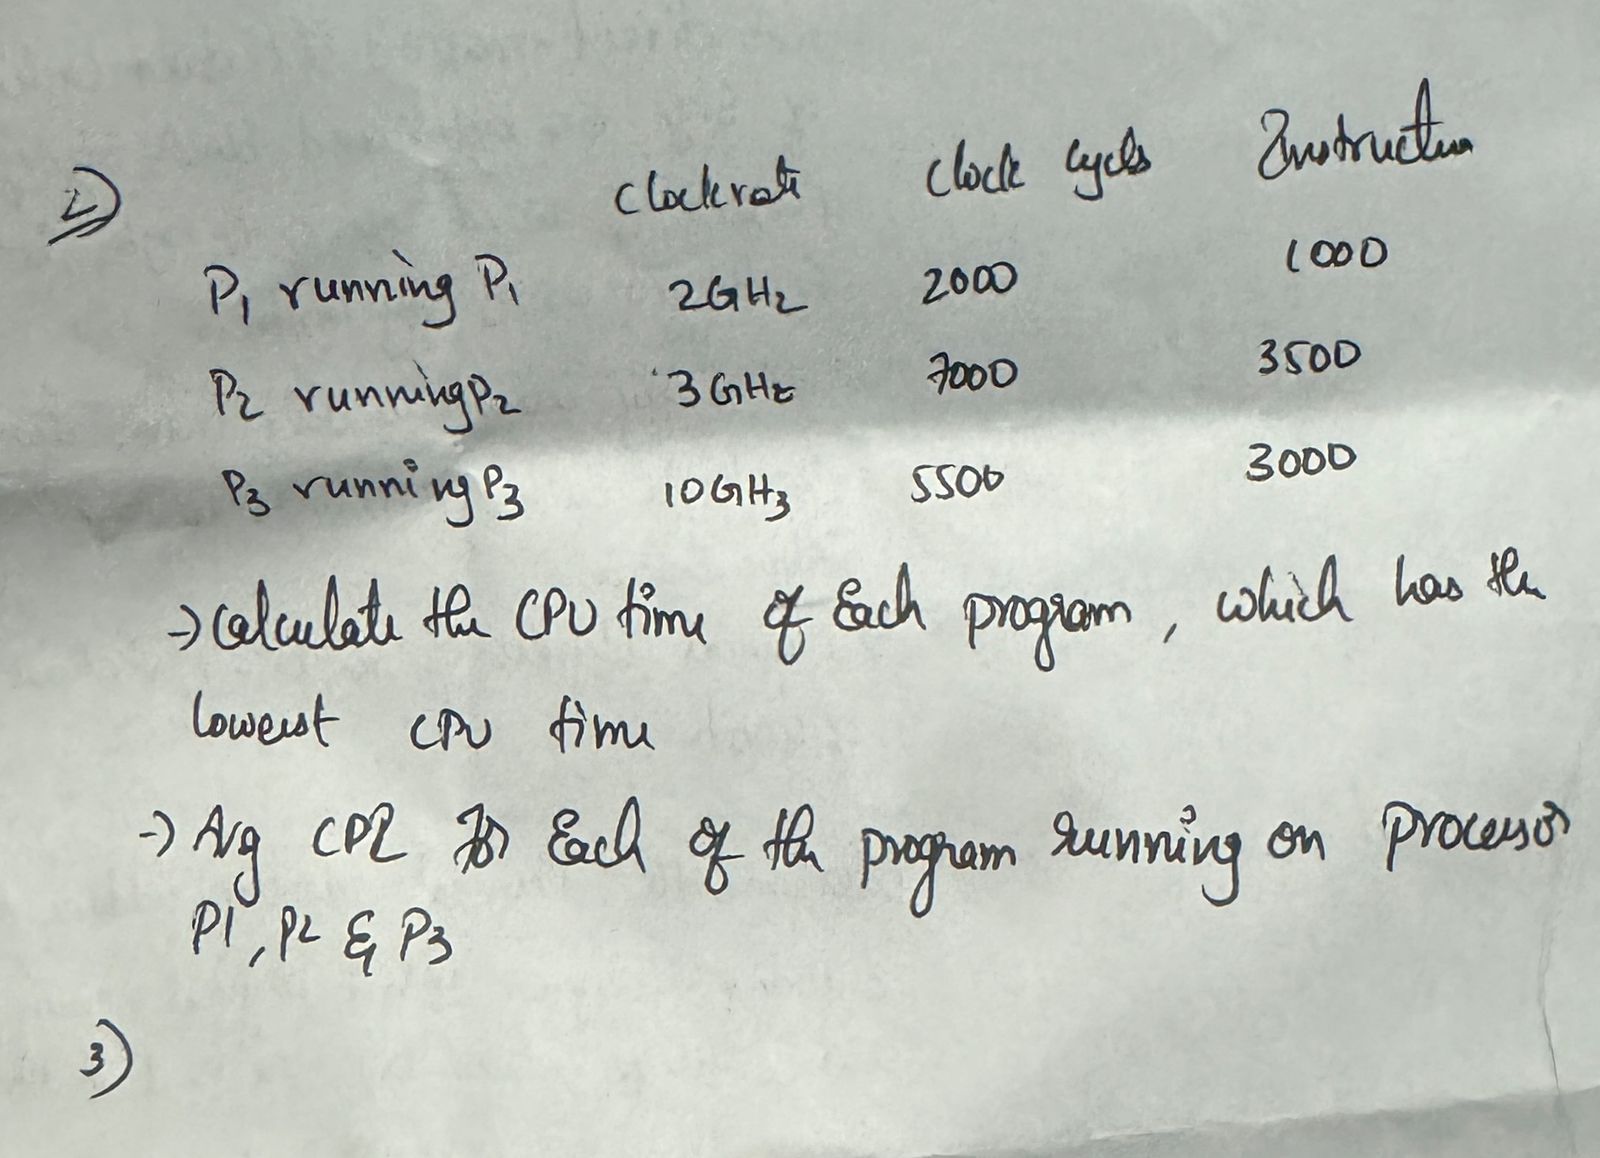 2)
Clockrate Clock cycles Instruction
P1 running P1 2GHz 2000 1000
P2 running P2 3GHz 7000 3500
P3 running P3 10GHz 5500 3000
→ Calculate the CPU time of Each program, which has the
lowest CPU time
→ Avg CPI for Each of the program running on processor
P1, P2 & P3
3)